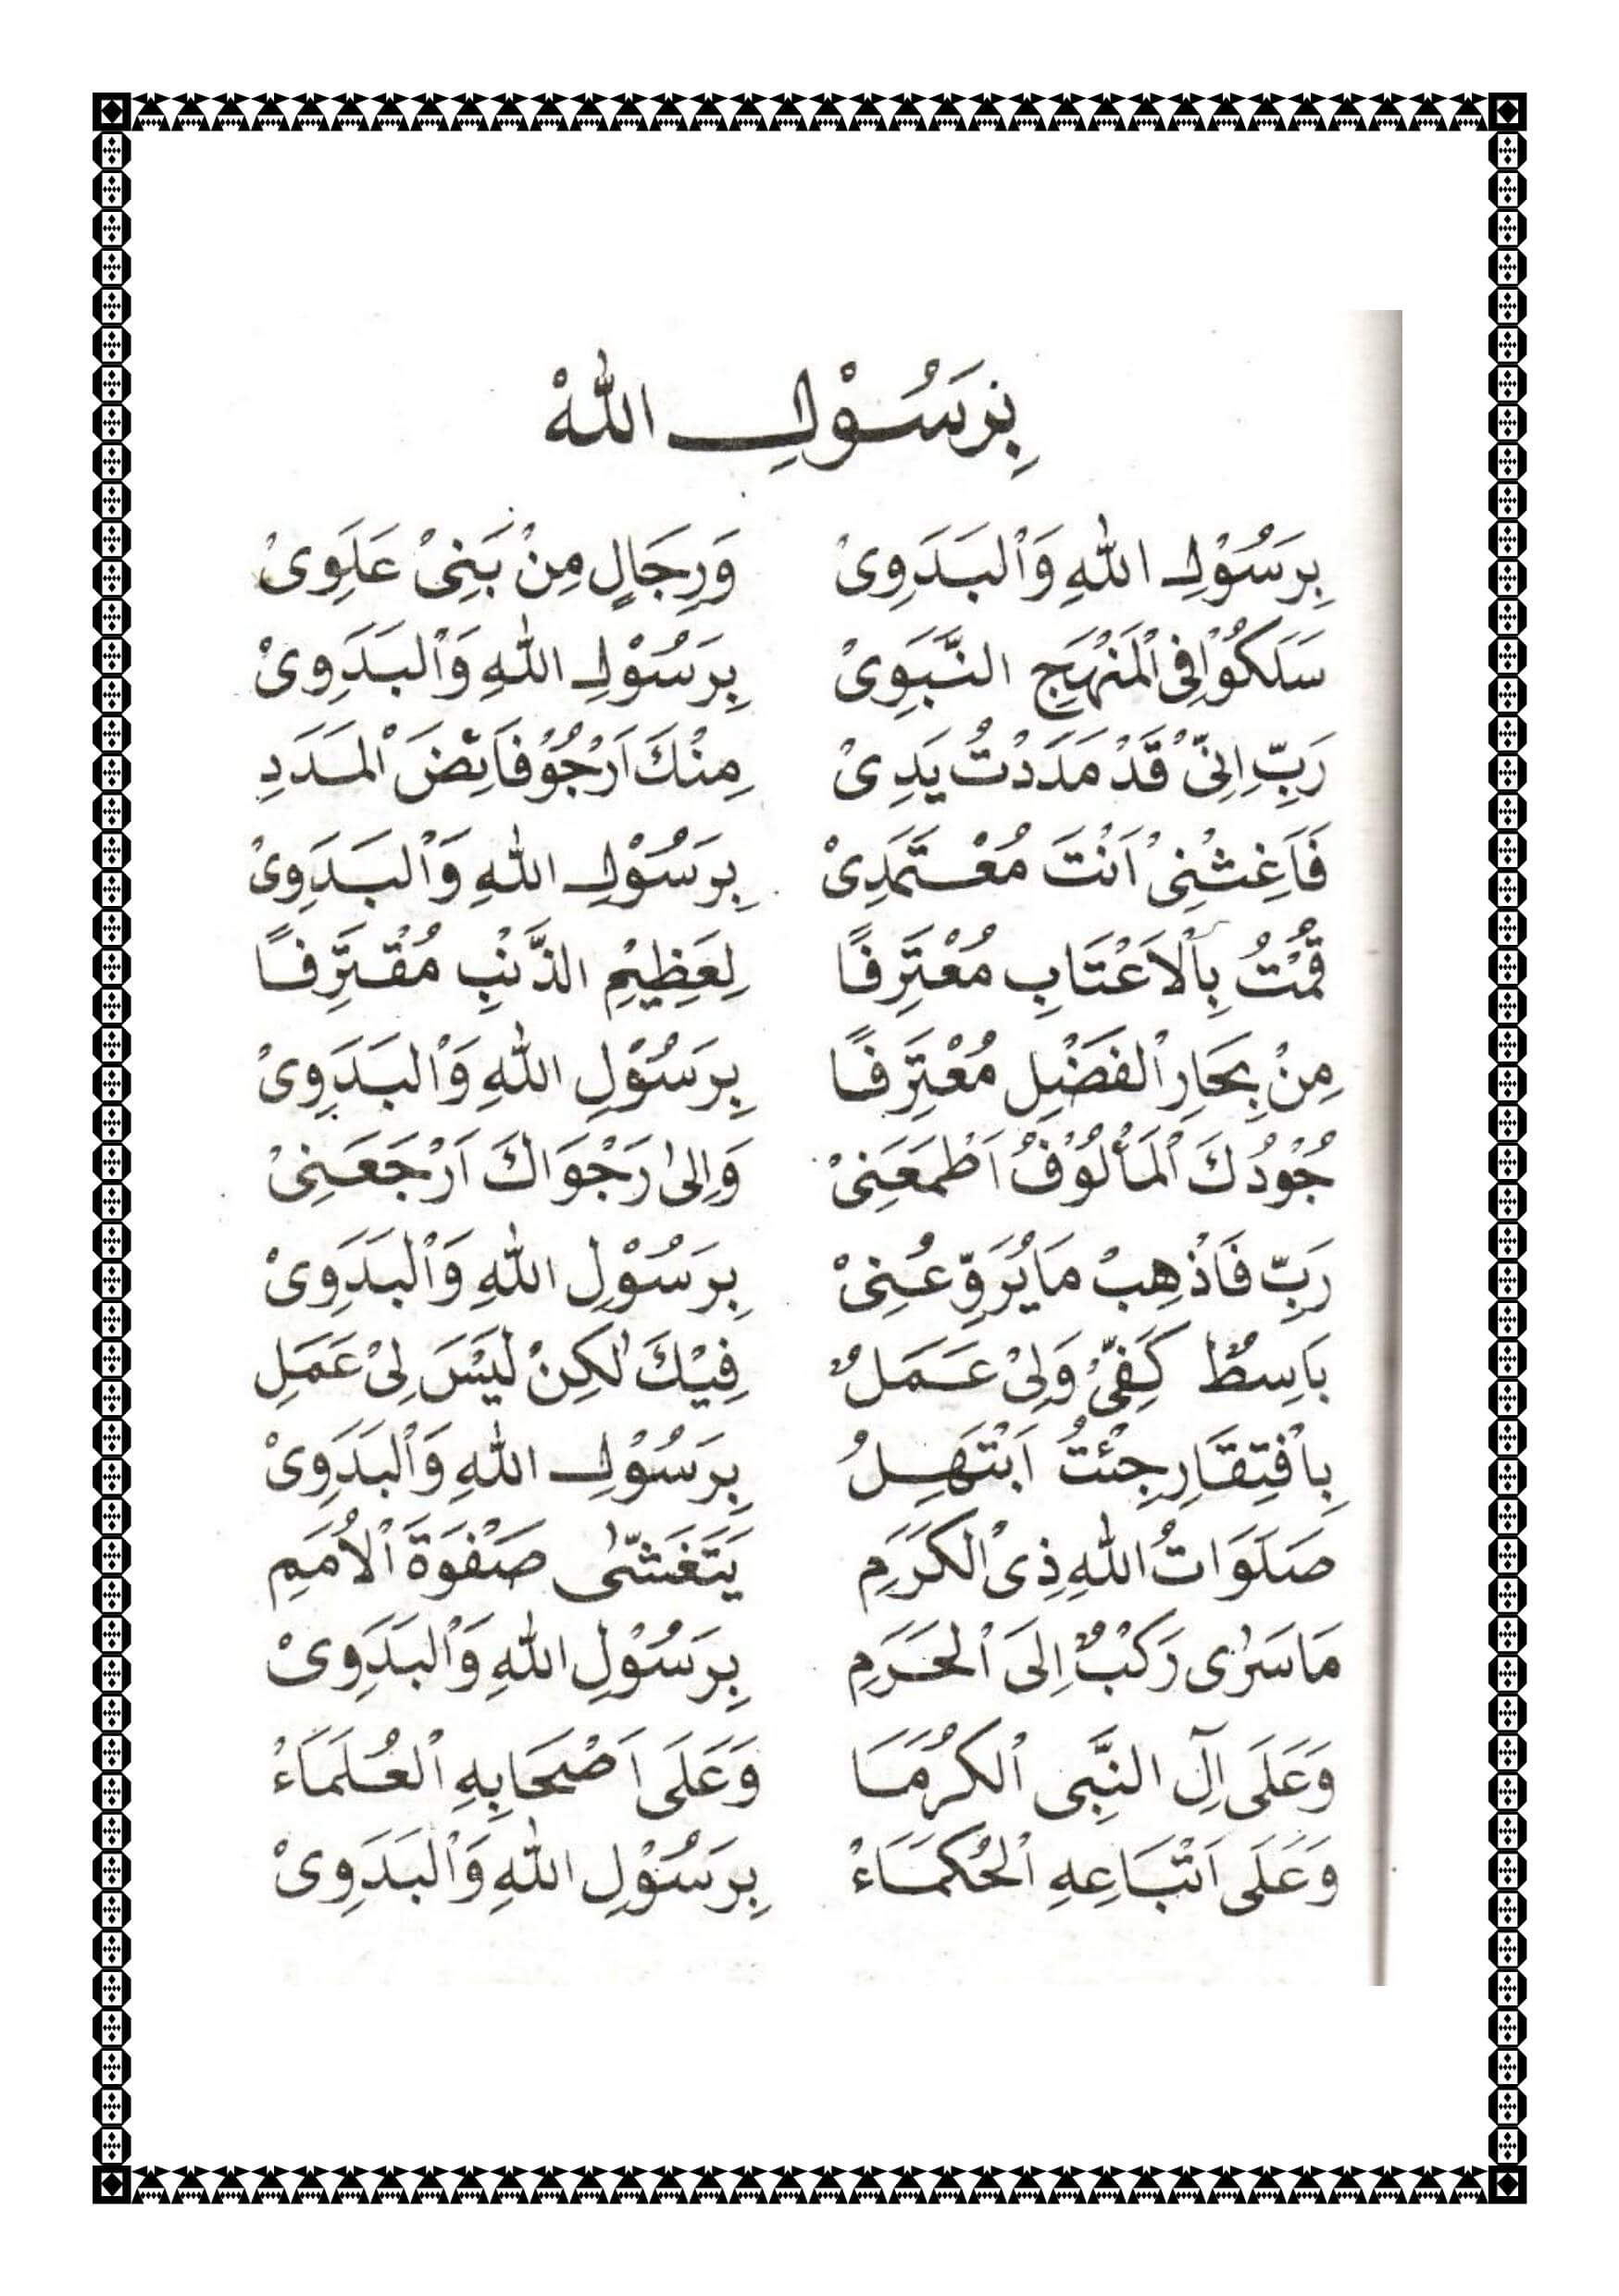 بِرَسُوْلِ اللهْ
بِرَسُوْلِ اللهِ وَالْبَدَوِىْ وَرِجَالٍ مِنْ بَنِىْ عَلَوِىْ
سَلَكُوْا فِى الْمَنْهَجِ النَّبَوِىْ بِرَسُوْلِ اللهِ وَالْبَدَوِىْ
رَبِّ اِنِّىْ قَدْ مَدَدْتُ يَدِىْ مِنْكَ اَرْجُوْ فَائِضَ الْمَدَدِ
فَاَغِثْنِىْ اَنْتَ مُعْتَمَدِىْ بِرَسُوْلِ اللهِ وَالْبَدَوِىْ
قُمْتُ بِالْاَعْتَابِ مُعْتَرِفًا لِعَظِيْمِ الذَّنْبِ مُقْتَرِفًا
مِنْ بِحَارِ الْفَضْلِ مُعْتَرِفًا بِرَسُوْلِ اللهِ وَالْبَدَوِىْ
جُوْدُكَ الْمَأْلُوْفُ اَطْمَعَنِىْ وَاِلٰى رَجْوَاكَ اَرْجَعَنِىْ
رَبِّ فَاَذْهِبْ مَا يُرَوِّعُنِىْ بِرَسُوْلِ اللهِ وَالْبَدَوِىْ
بَاسِطٌ كَفِّىْ وَلِىْ عَمَلٌ فِيْكَ لٰكِنْ لَيْسَ لِىْ عَمَلِ
بِافْتِقَارٍ جِئْتُ اَبْتَهِلُ بِرَسُوْلِ اللهِ وَالْبَدَوِىْ
صَلَوَاتُ اللهِ ذِى الْكَرَمِ يَتَغَشّٰى صَفْوَةَ الْاُمَمِ
مَا سَرٰى رَكْبٌ اِلَى الْحَرَمِ بِرَسُوْلِ اللهِ وَالْبَدَوِىْ
وَعَلَى اٰلِ النَّبِى الْكُرَمَا وَعَلَى اَصْحَابِهِ الْعُلَمَاءْ
وَعَلَى اَتْبَاعِهِ الْحُكَمَاءْ بِرَسُوْلِ اللهِ وَالْبَدَوِىْ